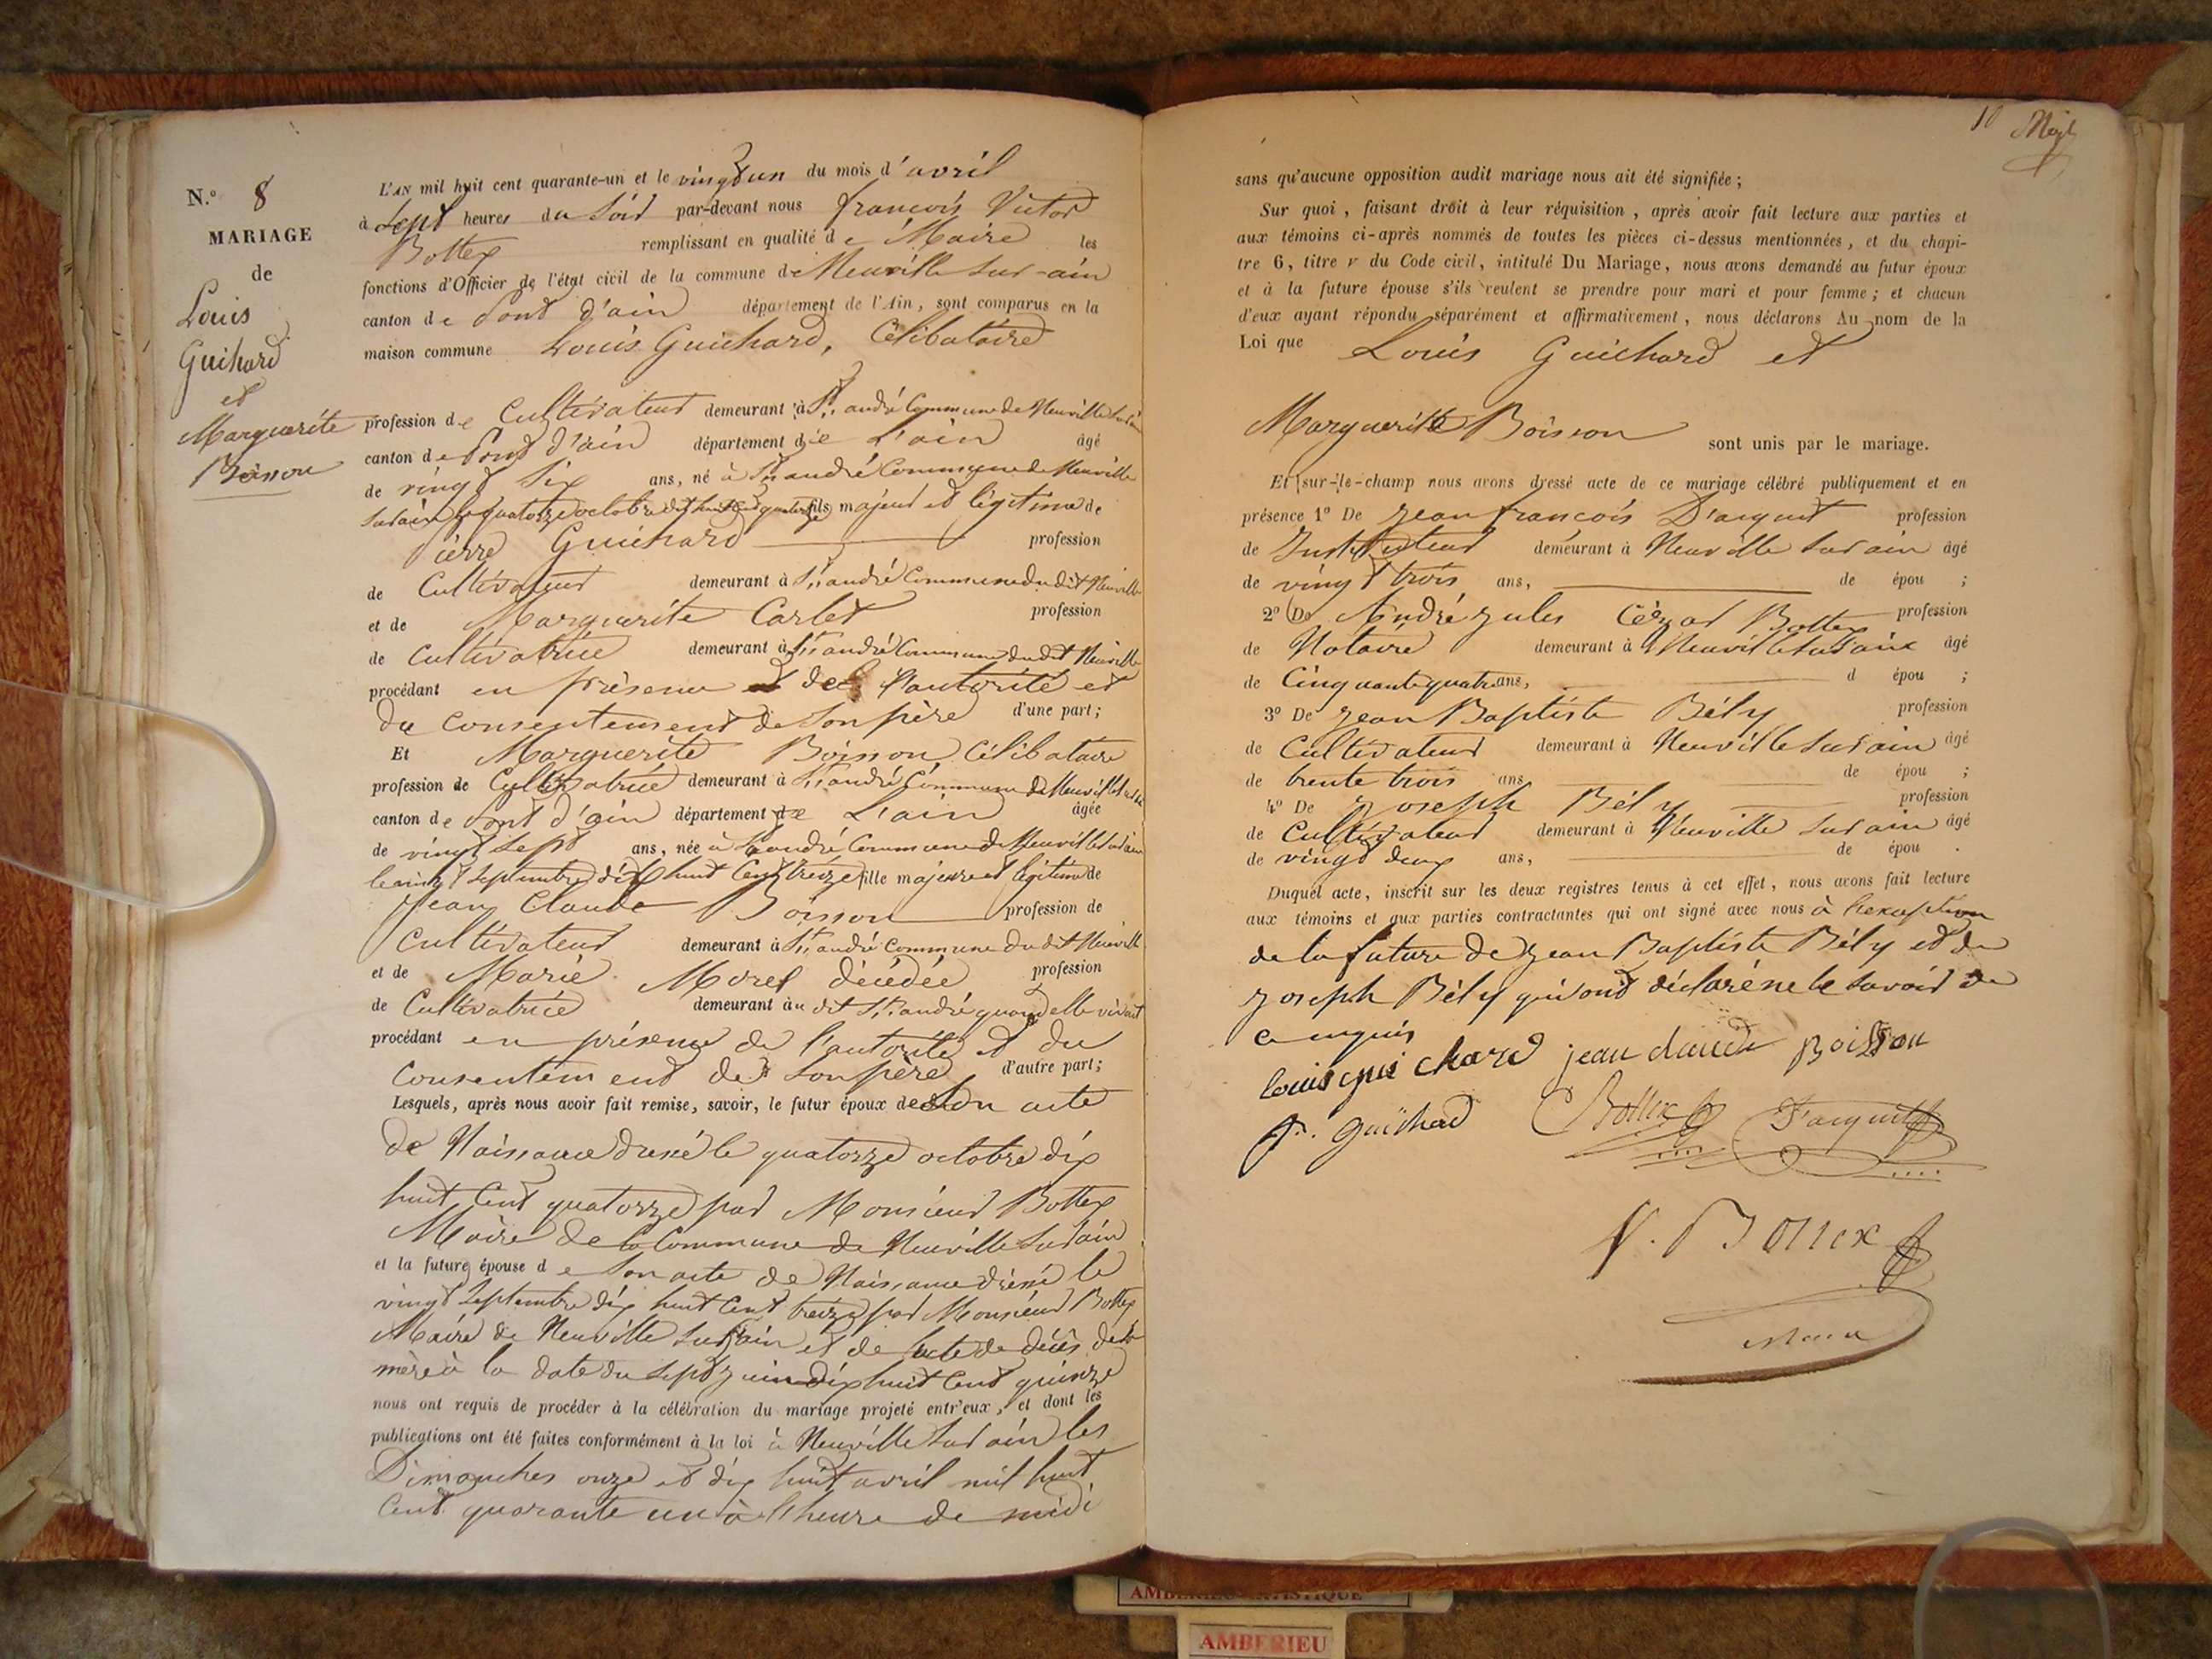 N.o 8
MARIAGE
de
Louis
Guichard
et
Marguerite
Boisson
L'AN mil huit cent quarante-un et le vingt un du mois d'avril
à Sept heures du Soir par-devant nous francois Victor
Bottex remplissant en qualité de Maire les
fonctions d'Officier de l'état civil de la commune de Neuville Sur-ain
canton de Pont d'ain département de l'Ain, sont comparus en la
maison commune Louis Guichard, Célibataire
profession de Cultivateur demeurant à St. andré Commune de Neuville Sur ain
canton de Pont d'ain département de L'ain âgé
de vingt Six ans, né à St. andré Commune de Neuville
Sur ain le quatorze octobre dix huit cent quatorze fils majeur et légitime de
Pierre Guichard profession
de Cultivateur demeurant à St. andré Commune du dit Neuville
et de Marguerite Carlet profession
de Cultivatrice demeurant à St. andré Commune du dit Neuville
procédant en présence de l'autorité et
du Consentement de Son père d'une part;
Et Marguerite Boisson Célibataire
profession de Cultivatrice demeurant à St. andré Commune de Neuville Sur ain
canton de Pont d'ain département de L'ain âgée
de vingt Sept ans, née à St andré Commune de Neuville Sur ain
le vingt Septembre dix huit Cent treize fille majeure et légitime de
Jean Claude Boisson profession de
Cultivateur demeurant à St. andré Commune du dit Neuville
et de Marie Morel décédée profession
de Cultivatrice demeurant au dit St. andré quand elle vivait
procédant en présence de l'autorité et du
Consentement de Son père d'autre part;
Lesquels, après nous avoir fait remise, savoir, le futur époux de Son acte
de Naissance dressé le quatorze octobre dix
huit Cent quatorze par Monsieur Bottex
Maire de la Commune de Neuville Sur ain
et la future épouse de Son acte de Naissance dressé le
vingt Septembre dix huit Cent treize par Monsieur Bottex
Maire de Neuville Sur ain et de l'acte de décès de Sa
mère à la date du Sept juin dix huit Cent quinze
nous ont requis de procéder à la célébration du mariage projeté entr'eux, et dont les
publications ont été faites conformément à la loi à Neuville Sur ain les
Dimanches onze et dix huit avril mil huit
Cent quarante un à l'heure de midi
10
sans qu'aucune opposition audit mariage nous ait été signifiée;
Sur quoi, faisant droit à leur réquisition, après avoir fait lecture aux parties et
aux témoins ci-après nommés de toutes les pièces ci-dessus mentionnées, et du chapi-
tre 6, titre v du Code civil, intitulé Du Mariage, nous avons demandé au futur époux
et à la future épouse s'ils veulent se prendre pour mari et pour femme; et chacun
d'eux ayant répondu séparément et affirmativement, nous déclarons Au nom de la
Loi que Louis Guichard et
Marguerite Boisson sont unis par le mariage.
Et sur-le-champ nous avons dressé acte de ce mariage célébré publiquement et en
présence 1o De Jean françois D'arguit profession
de Instituteur demeurant à Neuville Sur ain âgé
de vingt trois ans, de épou ;
2o De André Jules Cézar Bottex profession
de Notaire demeurant à Neuville Sur ain âgé
de Cinquante quatre ans, d épou ;
3o De Jean Baptiste Bély profession
de Cultivateur demeurant à Neuville Sur ain âgé
de trente trois ans de épou ;
4o De Joseph Bély profession
de Cultivateur demeurant à Neuville Sur ain âgé
de vingt deux ans, de épou .
Duquel acte, inscrit sur les deux registres tenus à cet effet, nous avons fait lecture
aux témoins et aux parties contractantes qui ont signé avec nous à l'exception
de la future de Jean Baptiste Bély et de
Joseph Bély qui ont déclaré ne le savoir de
ce enquis
louis gui chard jean claude Boisson
p. guichard Bottex D'arguit
V. Bottex
Maire
AMBERIEU